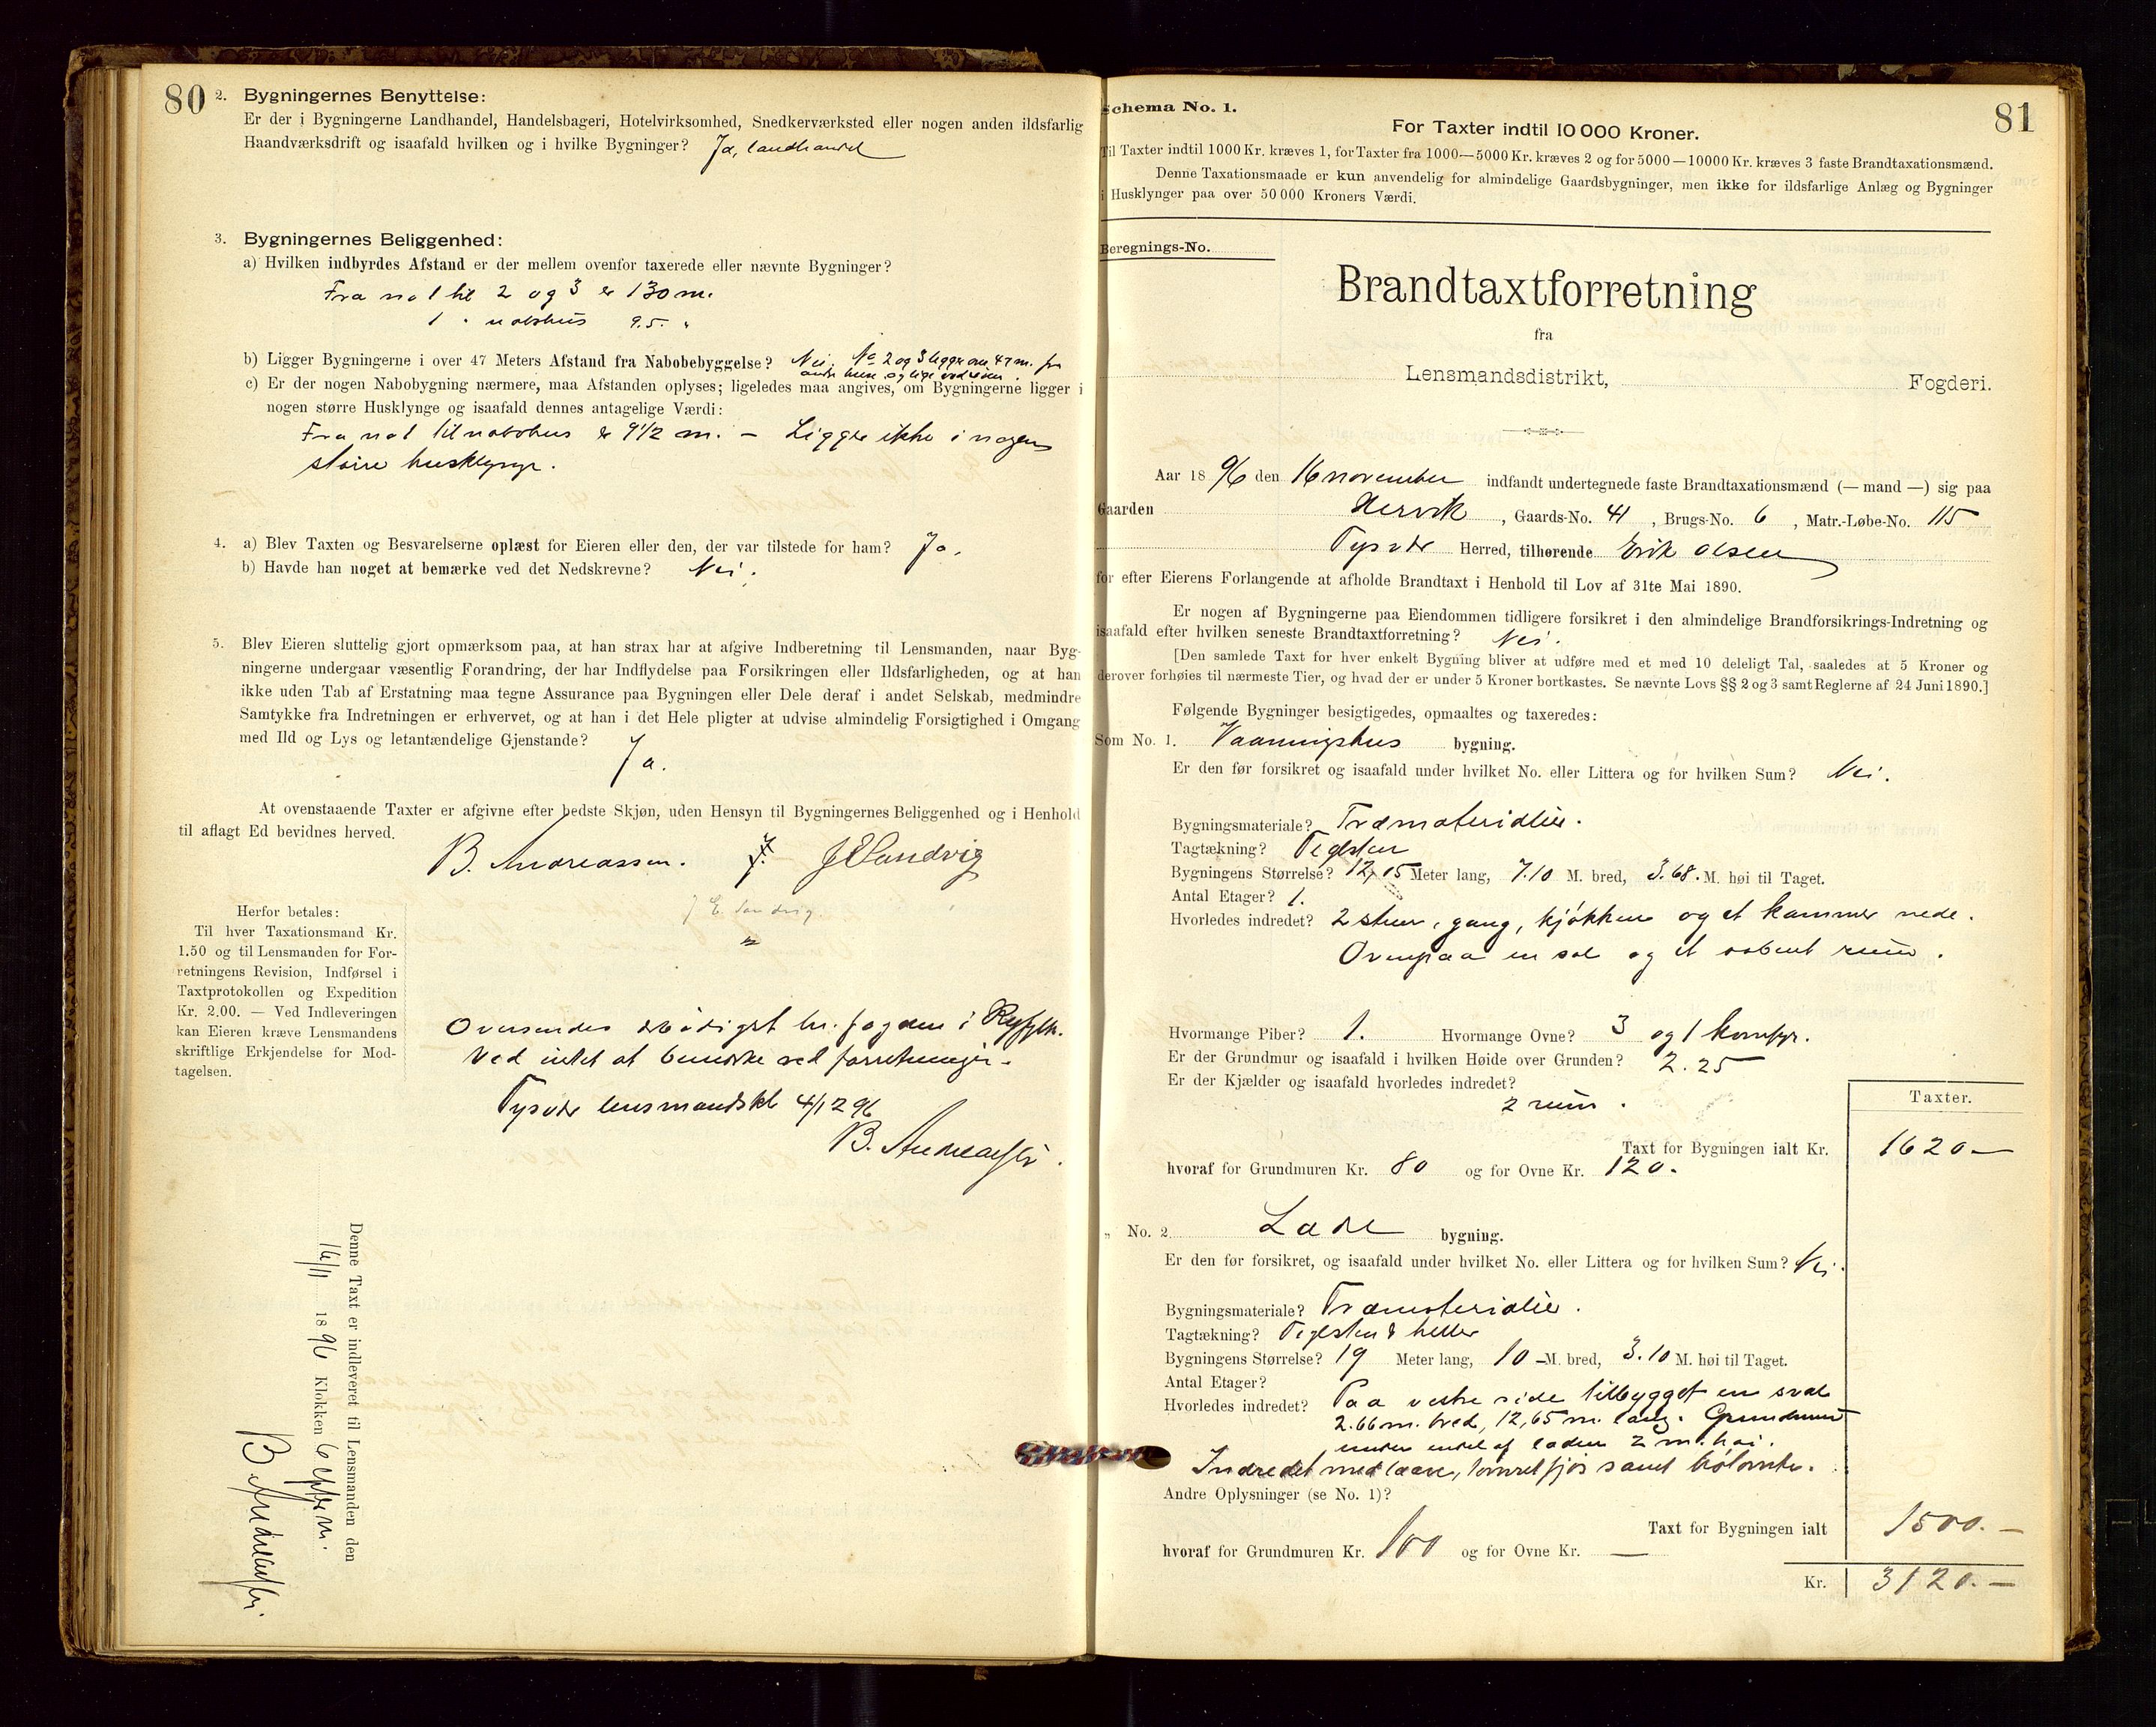 80
2. Bygningernes Benyttelse:
Er der i Bygningerne Landhandel, Handelsbageri, Hotelvirksomhed, Snedkerværksted eller nogen anden ildsfarlig
Haandværksdrift og isaafald hvilken og i hvilke Bygninger? Ja, landhandel
3. Bygningernes Beliggenhed:
a) Hvilken indbyrdes Afstand er der mellem ovenfor taxerede eller nævnte Bygninger?
Fra no 1 til 2 og 3 er 130 m.
1 " nabohus 9.5. "
b) Ligger Bygningerne i over 47 Meters Afstand fra Nabobebyggelse? Nei. No 2 og 3 ligger over 47 m. fra
andre huse og lige ved
c) Er der nogen Nabobygning nærmere, maa Afstanden oplyses; ligeledes maa angives, om Bygningerne ligger i
nogen større Husklynge og isaafald dennes antagelige Værdi:
Fra no 1 til nabohus er 9 1/2 m. – Ligger ikke i nogen
større husklynge.
4. a) Blev Taxten og Besvarelserne oplæst for Eieren eller den, der var tilstede for ham? Ja.
b) Havde han noget at bemærke ved det Nedskrevne? Nei.
5. Blev Eieren sluttelig gjort opmærksom paa, at han strax har at afgive Indberetning til Lensmanden, naar Byg-
ningerne undergaar væsentlig Forandring, der har Indflydelse paa Forsikringen eller Ildsfarligheden, og at han
ikke uden Tab af Erstatning maa tegne Assurance paa Bygningen eller Dele deraf i andet Selskab, medmindre
Samtykke fra Indretningen er erhvervet, og at han i det Hele pligter at udvise almindelig Forsigtighed i Omgang
med Ild og Lys og letantændelige Gjenstande?
Ja.
At ovenstaaende Taxter er afgivne efter bedste Skjøn, uden Hensyn til Bygningernes Beliggenhed og i Henhold
til aflagt Ed bevidnes herved.
B. Andreassen. J E Sandvig
J E. Sandvig.
Herfor betales:
Til hver Taxationsmand Kr.
1.50 og til Lensmanden for For-
retningens Revision, Indførsel i
Taxtprotokollen og Expedition
Kr. 2.00. — Ved Indleveringen
kan Eieren kræve Lensmandens
skriftlige Erkjendelse for Mod-
tagelsen.
Oversendes ærbødigst hr. fogden i Ryfylke.
Ved intet at bemærke ved forretningen.
Tysvær lensmandskt 4/12 96
B. Andreassen.
Denne Taxt er indleveret til Lensmanden den
16/11 1896 Klokken 6 efterm.
B. Andreassen.
81
Schema No. 1.
For Taxter indtil 10 000 Kroner.
Til Taxter indtil 1000 Kr. kræves 1, for Taxter fra 1000—5000 Kr. kræves 2 og for 5000—10000 Kr. kræves 3 faste Brandtaxationsmænd.
Denne Taxationsmaade er kun anvendelig for almindelige Gaardsbygninger, men ikke for ildsfarlige Anlæg og Bygninger
i Husklynger paa over 50 000 Kroners Værdi.
Beregnings-No.
Brandtaxtforretning
fra
Lensmandsdistrikt, Fogderi.
Aar 1896 den 16 november indfandt undertegnede faste Brandtaxationsmænd (— mand —) sig paa
Gaarden Hervik, Gaards-No. 41, Brugs-No. 6, Matr.-Løbe-No. 115
Tysvær Herred, tilhørende Erik Olsen
for efter Eierens Forlangende at afholde Brandtaxt i Henhold til Lov af 31te Mai 1890.
Er nogen af Bygningerne paa Eiendommen tidligere forsikret i den almindelige Brandforsikrings-Indretning og
isaafald efter hvilken seneste Brandtaxtforretning? Nei.
[Den samlede Taxt for hver enkelt Bygning bliver at udføre med et med 10 deleligt Tal, saaledes at 5 Kroner og
derover forhøies til nærmeste Tier, og hvad der er under 5 Kroner bortkastes. Se nævnte Lovs §§ 2 og 3 samt Reglerne af 24 Juni 1890.]
Følgende Bygninger besigtigedes, opmaaltes og taxeredes:
Som No. 1. Vaaningshus bygning.
Er den før forsikret og isaafald under hvilket No. eller Littera og for hvilken Sum? Nei.
Bygningsmateriale? Træmaterialier.
Tagtækning? Teglsten
Bygningens Størrelse? 12,15 Meter lang, 7.10 M. bred, 3.68. M. høi til Taget.
Antal Etager? 1.
Hvorledes indredet? 2 stuer, gang, kjøkken og et kammer nede.
Ovenpaa en sal og et aabent rum.
Hvormange Piber? 1. Hvormange Ovne? 3 og 1 komfyr.
Er der Grundmur og isaafald i hvilken Høide over Grunden? 2.25
Er der Kjælder og isaafald hvorledes indredet?
2 rum.
Taxter.
Taxt for Bygningen ialt Kr. 1620—
hvoraf for Grundmuren Kr. 80 og for Ovne Kr. 120.
" No. 2. Lade bygning.
Er den før forsikret, og isaafald under hvilket No. eller Littera og for hvilken Sum? Nei.
Bygningsmateriale? Træmaterialier.
Tagtækning? Teglsten & heller
Bygningens Størrelse? 19 Meter lang, 10 – M. bred, 3.10 M. høi til Taget.
Antal Etager?
Hvorledes indredet? Paa vestre side tilbygget en sval
2.66 m. bred, 12,65 m. lang. Grundmur
under endel af laden 2 m. høi.
Indredet med laave, tømret fjøs samt
Andre Oplysninger (se No. 1)?
Taxt for Bygningen ialt 1500.—
hvoraf for Grundmuren Kr. 100 og for Ovne Kr. —
Kr. 3120.—